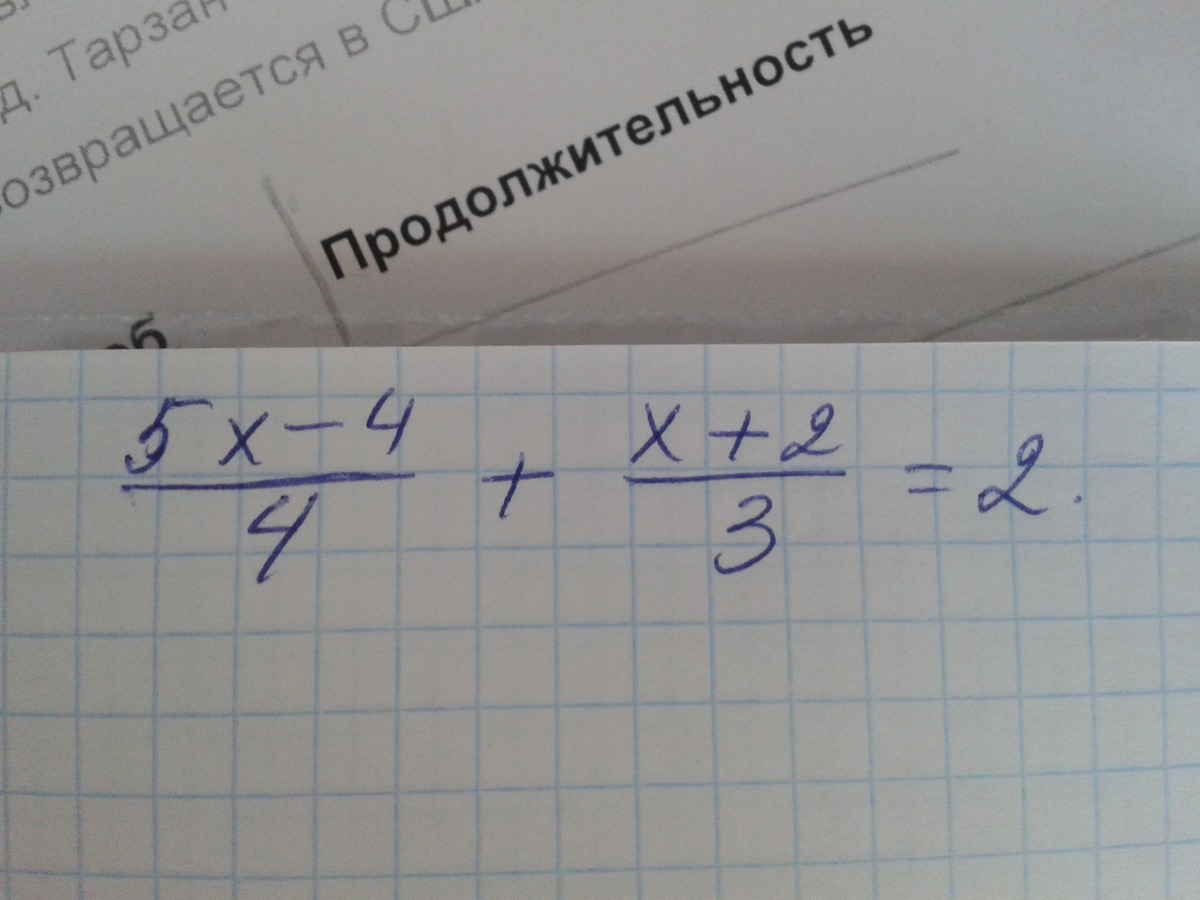 д. Тарзан
возвращается в США
Продолжительность
(5x-4)/4 + (x+2)/3 = 2.